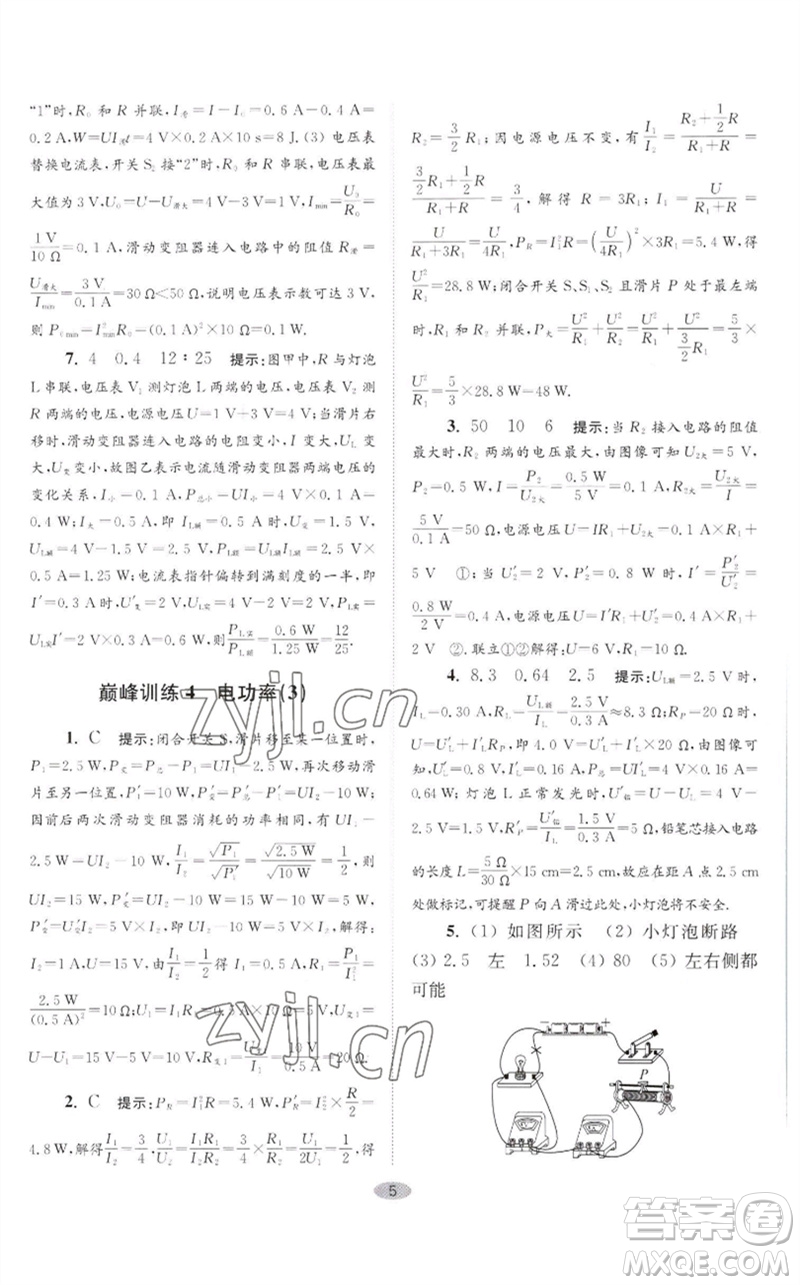 “1”时, R₀ 和 R 并联, I滑=I-I₀=0.6 A-0.4 A=
0.2 A, W=UI滑t=4 V×0.2 A×10 s=8 J. (3) 电压表
替换电流表, 开关 S₂ 接“2”时, R₀ 和 R 串联, 电压表最
大值为 3 V, U₀=U-U滑大=4 V-3 V=1 V, Imin=U₀/R₀=
1 V/10 Ω=0.1 A, 滑动变阻器连入电路中的阻值 R滑=
U滑大/Imin=3 V/0.1 A=30 Ω<50 Ω, 说明电压表示数可达 3 V,
则 P₀min=I²minR₀-(0.1 A)²×10 Ω=0.1 W.
7. 4 0.4 12∶25 提示:图甲中, R 与灯泡
L 串联, 电压表 V₁ 测灯泡 L 两端的电压, V₂ 测
R 两端的电压, 电源电压 U=1 V+3 V=4 V; 当滑片右
移时, 滑动变阻器连入电路的电阻变小, I 变大, UL 变
大, U变 变小, 故图乙表示电流随滑动变阻器两端电压的
变化关系, I小-0.1 A, P总小-UI小=4 V×0.1 A=
0.4 W; I大-0.5 A, 即 IL额-0.5 A, UL额-1.5 V,
UL额=4 V-1.5 V=2.5 V, PL额=UL额IL额-2.5 V×
0.5 A=1.25 W; 电流表指针偏转到满刻度的一半, 即
I′=0.3 A, 则 U′变=2 V, UL实=4 V-2 V=2 V, PL实=
UL实I′=2 V×0.3 A=0.6 W, PL实/PL额=0.6 W/1.25 W=12/25.
巅峰训练 4 电功率(3)
1. C 提示:闭合开关 S, 滑片移至某一位置时,
P₁=2.5 W, P变=P总-P₁=UI₁-2.5 W; 再次移动滑
片至另一位置时, P′₁=10 W, P′变=P′总-P′₁=UI₂-10 W;
因前后两次滑动变阻器消耗的功率相同, 有 UI₁-
2.5 W=UI₂-10 W, I₁/I₂=√P₁/√P′₁=√2.5 W/√10 W=1/2, 则
UI₁=10 W-2.5 W=7.5 W, P变=7.5 W-2.5 W=5 W,
P′变=U′变I₂=U′变×2I₁=5 W, 即 U′变I₁=2.5 W, 又因为
UI₁-U′变I₁=5 V×I₁, 即 UI₁-2.5 W=5 V×I₁, 解得:
I₁=1 A, U=15 V, 由 I₁/I₂=1/2, 得 I₁=0.5 A; R₁=P₁/I₁²=
2.5 W/(0.5 A)²=10 Ω; U₁=I₁R₁=0.5 A×10 Ω=5 V, U变1=
U-U₁=15 V-5 V=10 V, R变1=U变1/I₁=10 V/0.5 A=20 Ω.
2. C 提示: PR=I₁²R=5.4 W, P′R=I₂²×R/2=
4.8 W, 解得 I₁/I₂=3/4. U₁/U₂=I₁R₁/I₂R₂=3/4×R₁/R₂=1/2, 得
R₂=3/2 R₁; 因电源电压不变, 有 I₁/I₂=(R₂+1/2R)/(R₁+R)=
(3/2R₁+1/2R)/(R₁+R)=3/4, 解得 R=3R₁; I₁=U/(R₁+R)=
U/(R₁+3R₁)=U/4R₁, PR=I₁²R=(U/4R₁)²×3R₁=5.4 W, 得
U²/R₁=28.8 W; 闭合开关 S、S₁、S₂ 且滑片 P 处于最左端
时, R₁ 和 R₂ 并联, P大=U²/R₁+U²/R₂=U²/R₁+U²/(3/2R₁)=5/3×
U²/R₁=5/3×28.8 W-48 W.
3. 50 10 6 提示:当 R₂ 接入电路的阻值
最大时, R₂ 两端的电压最大, 由图像可知 U2大=5 V,
P₂=0.5 W, I=P₂/U2大=0.5 W/5 V=0.1 A, R2大=U2大/I=
5 V/0.1 A=50 Ω, 电源电压 U=IR₁+U2大=0.1 A×R₁+
5 V ①; 当 U′₂=2 V, P′₂=0.8 W 时, I′=P′₂/U′₂=
0.8 W/2 V=0.4 A, 电源电压 U=I′R₁+U′₂=0.4 A×R₁+
2 V ②. 联立①②解得: U-6 V, R₁-10 Ω.
4. 8.3 0.64 2.5 提示: UL额=2.5 V 时,
IL-0.30 A, RL=UL额/IL=2.5 V/0.3 A≈8.3 Ω; RP-20 Ω 时,
U=U′L+I′LRP=U′L+I′L×20 Ω=4 V, 由图像可知
U′L=0.8 V, I′L=0.16 A, P总=UI′L=4 V×0.16 A=
0.64 W; 灯泡 L 正常发光时, U′铅=U-UL额=4 V-
2.5 V=1.5 V, R′P=U′铅/IL=1.5 V/0.3 A=5 Ω, 铅笔芯接入电路
的长度 L=5 Ω/30 Ω×15 cm=2.5 cm, 故应在距 A 点 2.5 cm
处做标记, 可提醒 P 向 A 滑过此点, 小灯泡将不安全.
5. (1) 如图所示 (2) 小灯泡断路
(3) 2.5 左 1.52 (4) 80 (5) 左右侧都
可能
P
5
zyjl.cn
zyjl.cn
答案圈
MXQE.COM